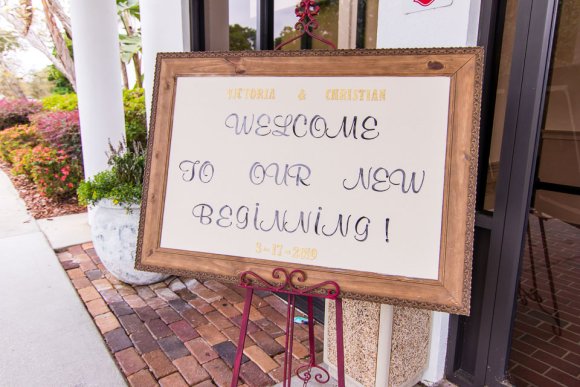 VICTORIA & CHRISTIAN
WELCOME
TO OUR NEW
BEGiNNiNG!
3-17-2019